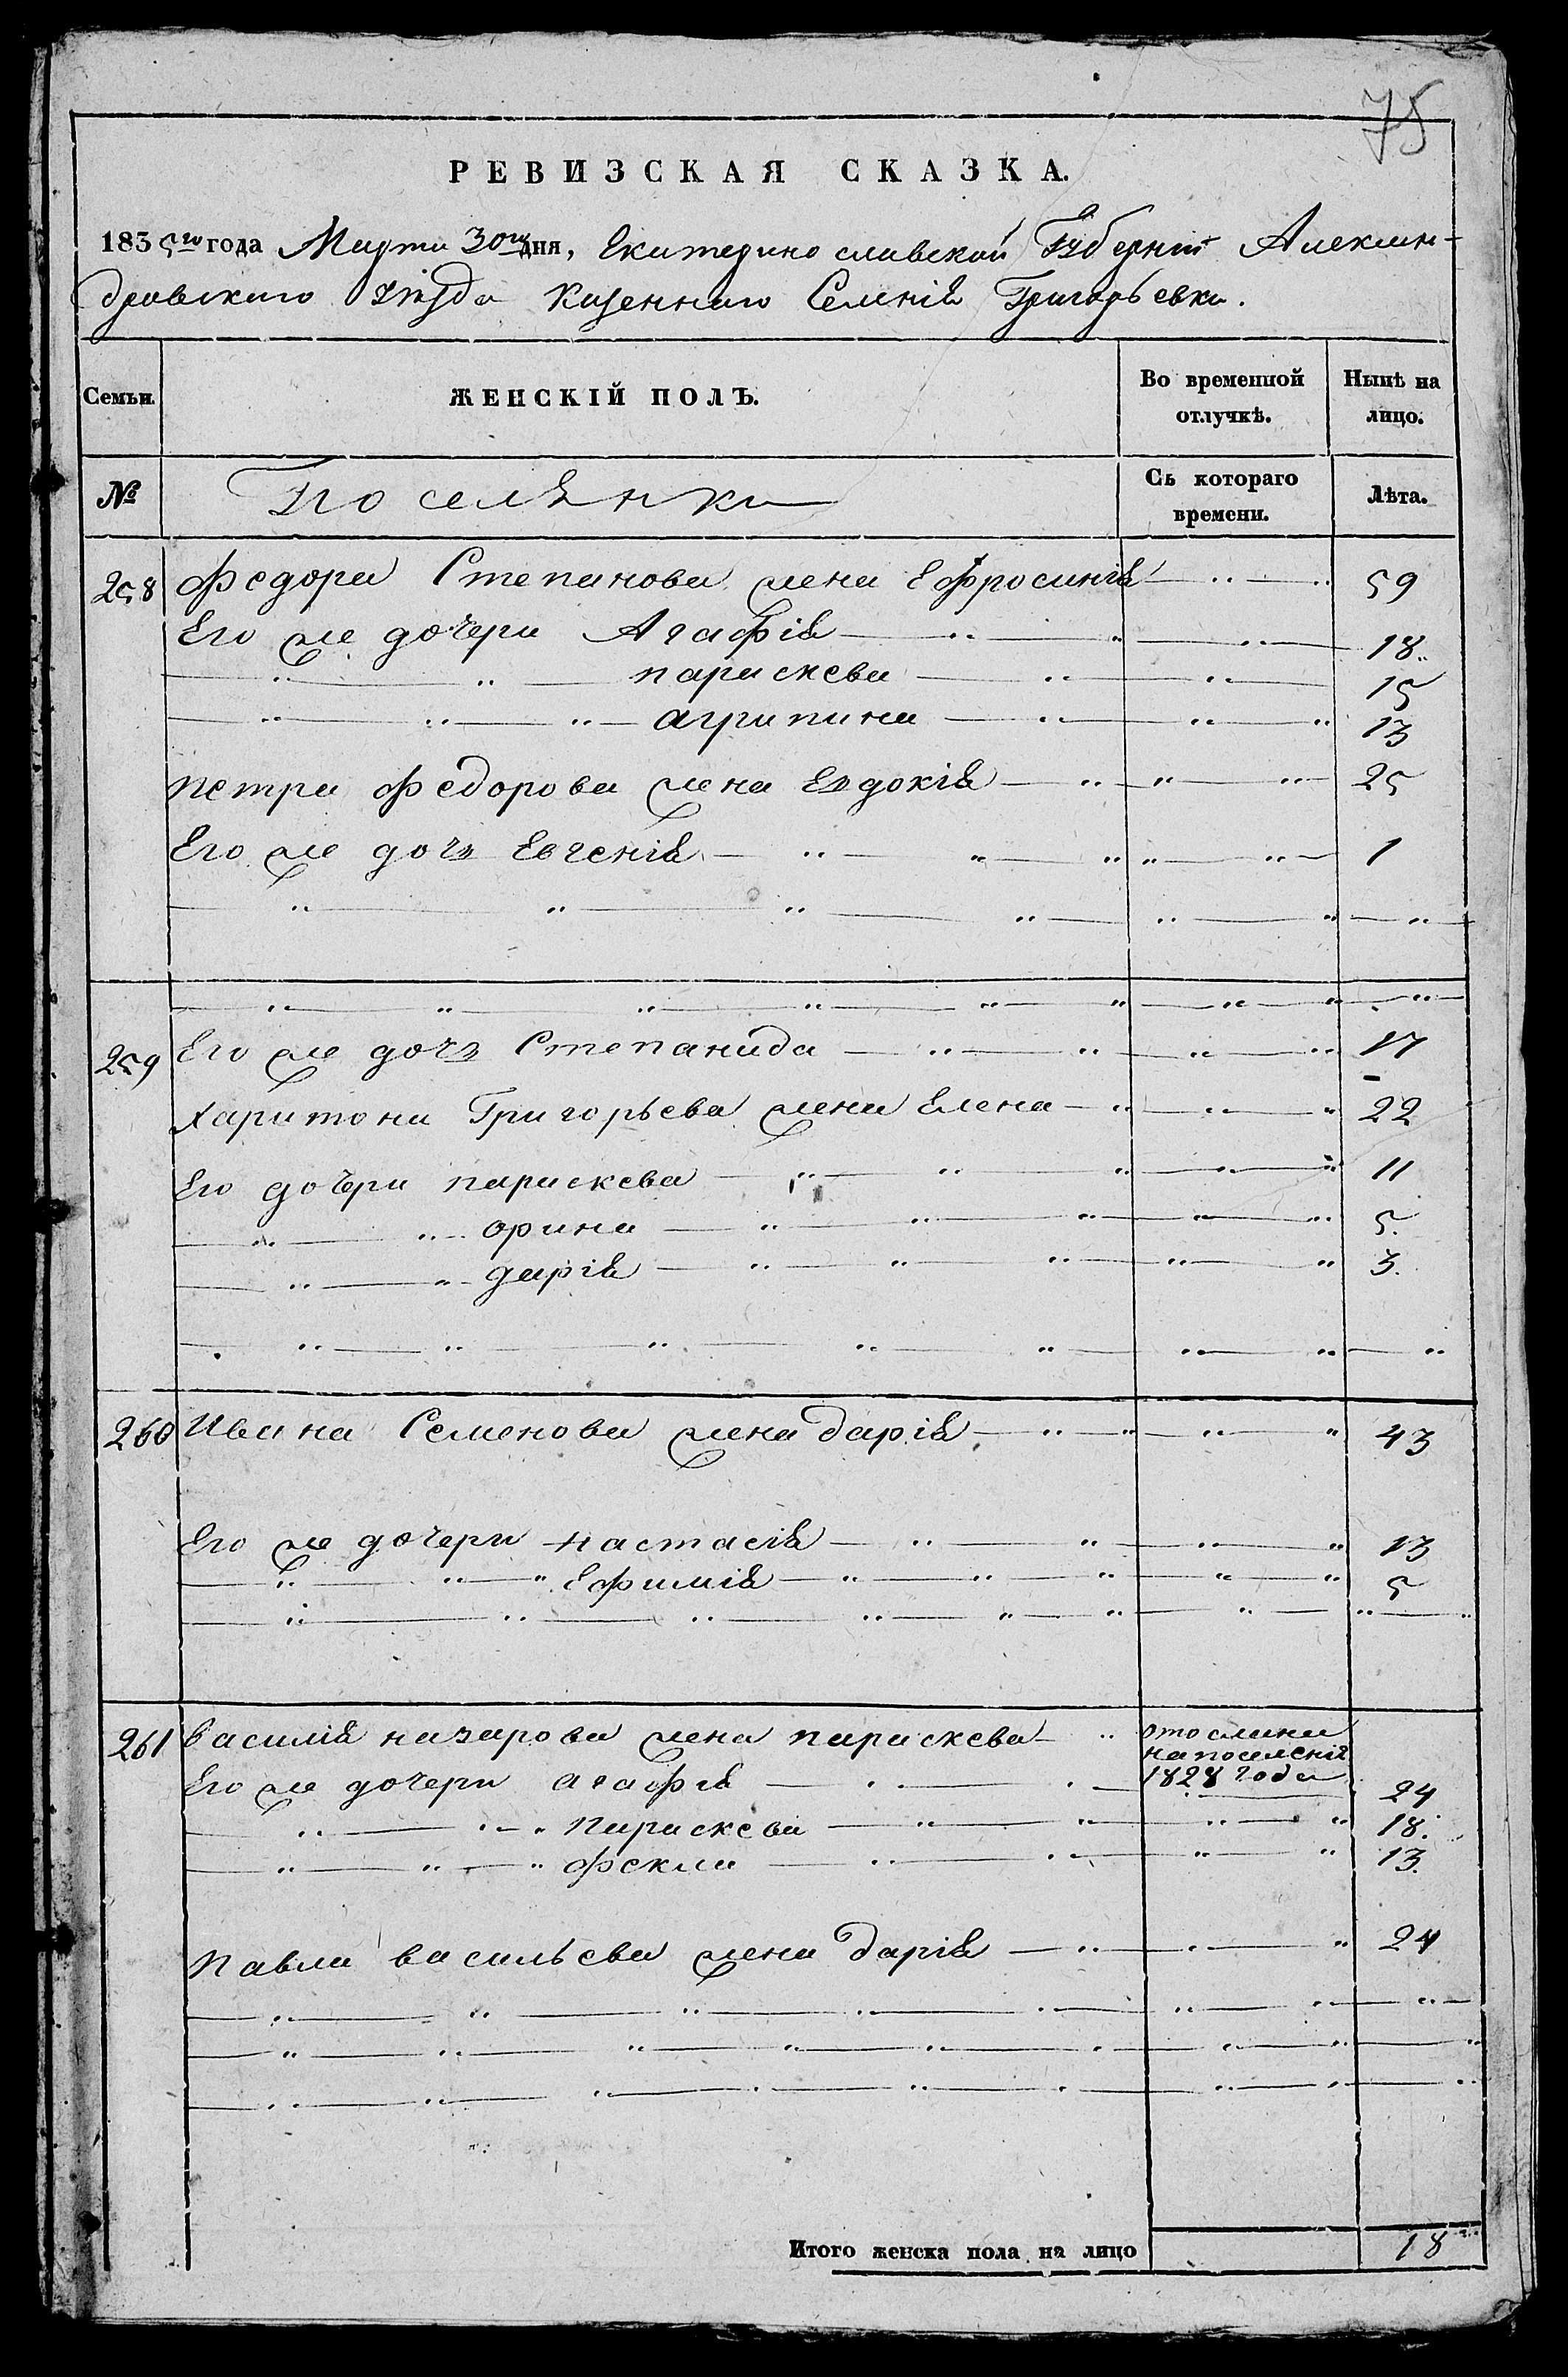 75
РЕВИЗСКАЯ СКАЗКА.
1835го года Марта 30го дня, Екатерино славской Губерніи Алексан-
дровскаго Уѣзда Казеннаго Селенія Григорьевки.
Семьи. ЖЕНСКІЙ ПОЛЪ. Во временной отлучкѣ. Нынѣ на лицо.
№ Поселянки Съ котораго времени. Лѣта.
258 Федора Степанова жена Ефросинія 59
Его же дочери Агафія 18
параскева 15
агрипина 13
петра Федорова жена Евдокія 25
Его же дочь Евгенія 1
259 Его же дочь Степанида 17
Харитона Григорьева жена Елена 22
Его дочери параскева 11
орина 5.
дарія 3.
260 Ивана Семенова жена дарія 43
Его же дочери настасія 13
Ефимія 5
261 Василія назарова жена параскева отослана
на поселеніе
1828 года
Его же дочери агафія 24
Параскева 18.
фекла 13.
Павла васильева жена дарія 24
Итого женска пола на лицо 18